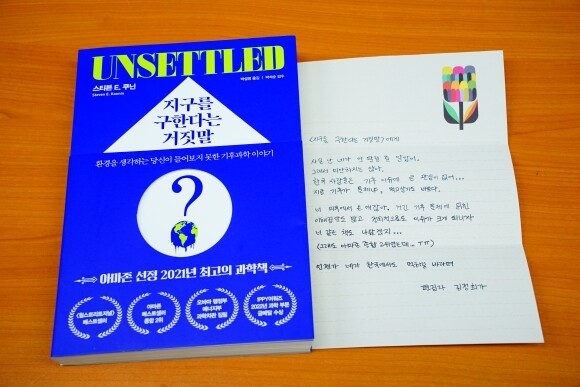 UNSETTLED
스티븐 E. 쿠닌
Steven E. Koonin
박설영 옮김 | 박석순 감수
지구를
구한다는
거짓말
환경을 생각하는 당신이 들어보지 못한 기후과학 이야기
?
아마존 선정 2021년 최고의 과학책
〈월스트리트저널〉
베스트셀러
아마존
베스트셀러
종합 2위
오바마 행정부
에너지부
과학차관 집필
IPPY어워즈
2022년 과학 부문
금메달 수상
〈지구를 구한다는 거짓말〉에게
사실 난 네가 안 팔릴 줄 알았어.
그래서 미안하지는 않아.
한국 사람들은 기후 이슈에 큰 관심이 없어...
지금 기후가 문제냐, 먹고살기도 바쁜데.
너 미국에서 온 책이잖아. 거긴 기후 문제에 얽힌
이해집단도 많고 정치적으로도 이슈가 크게 되니까
너 같은 책도 나왔겠지...
(그래도 아마존 종합 2위였는데.. ㅠㅠ)
언젠가 네가 한국에서도 먹히길 바라며
편집자 김정희가